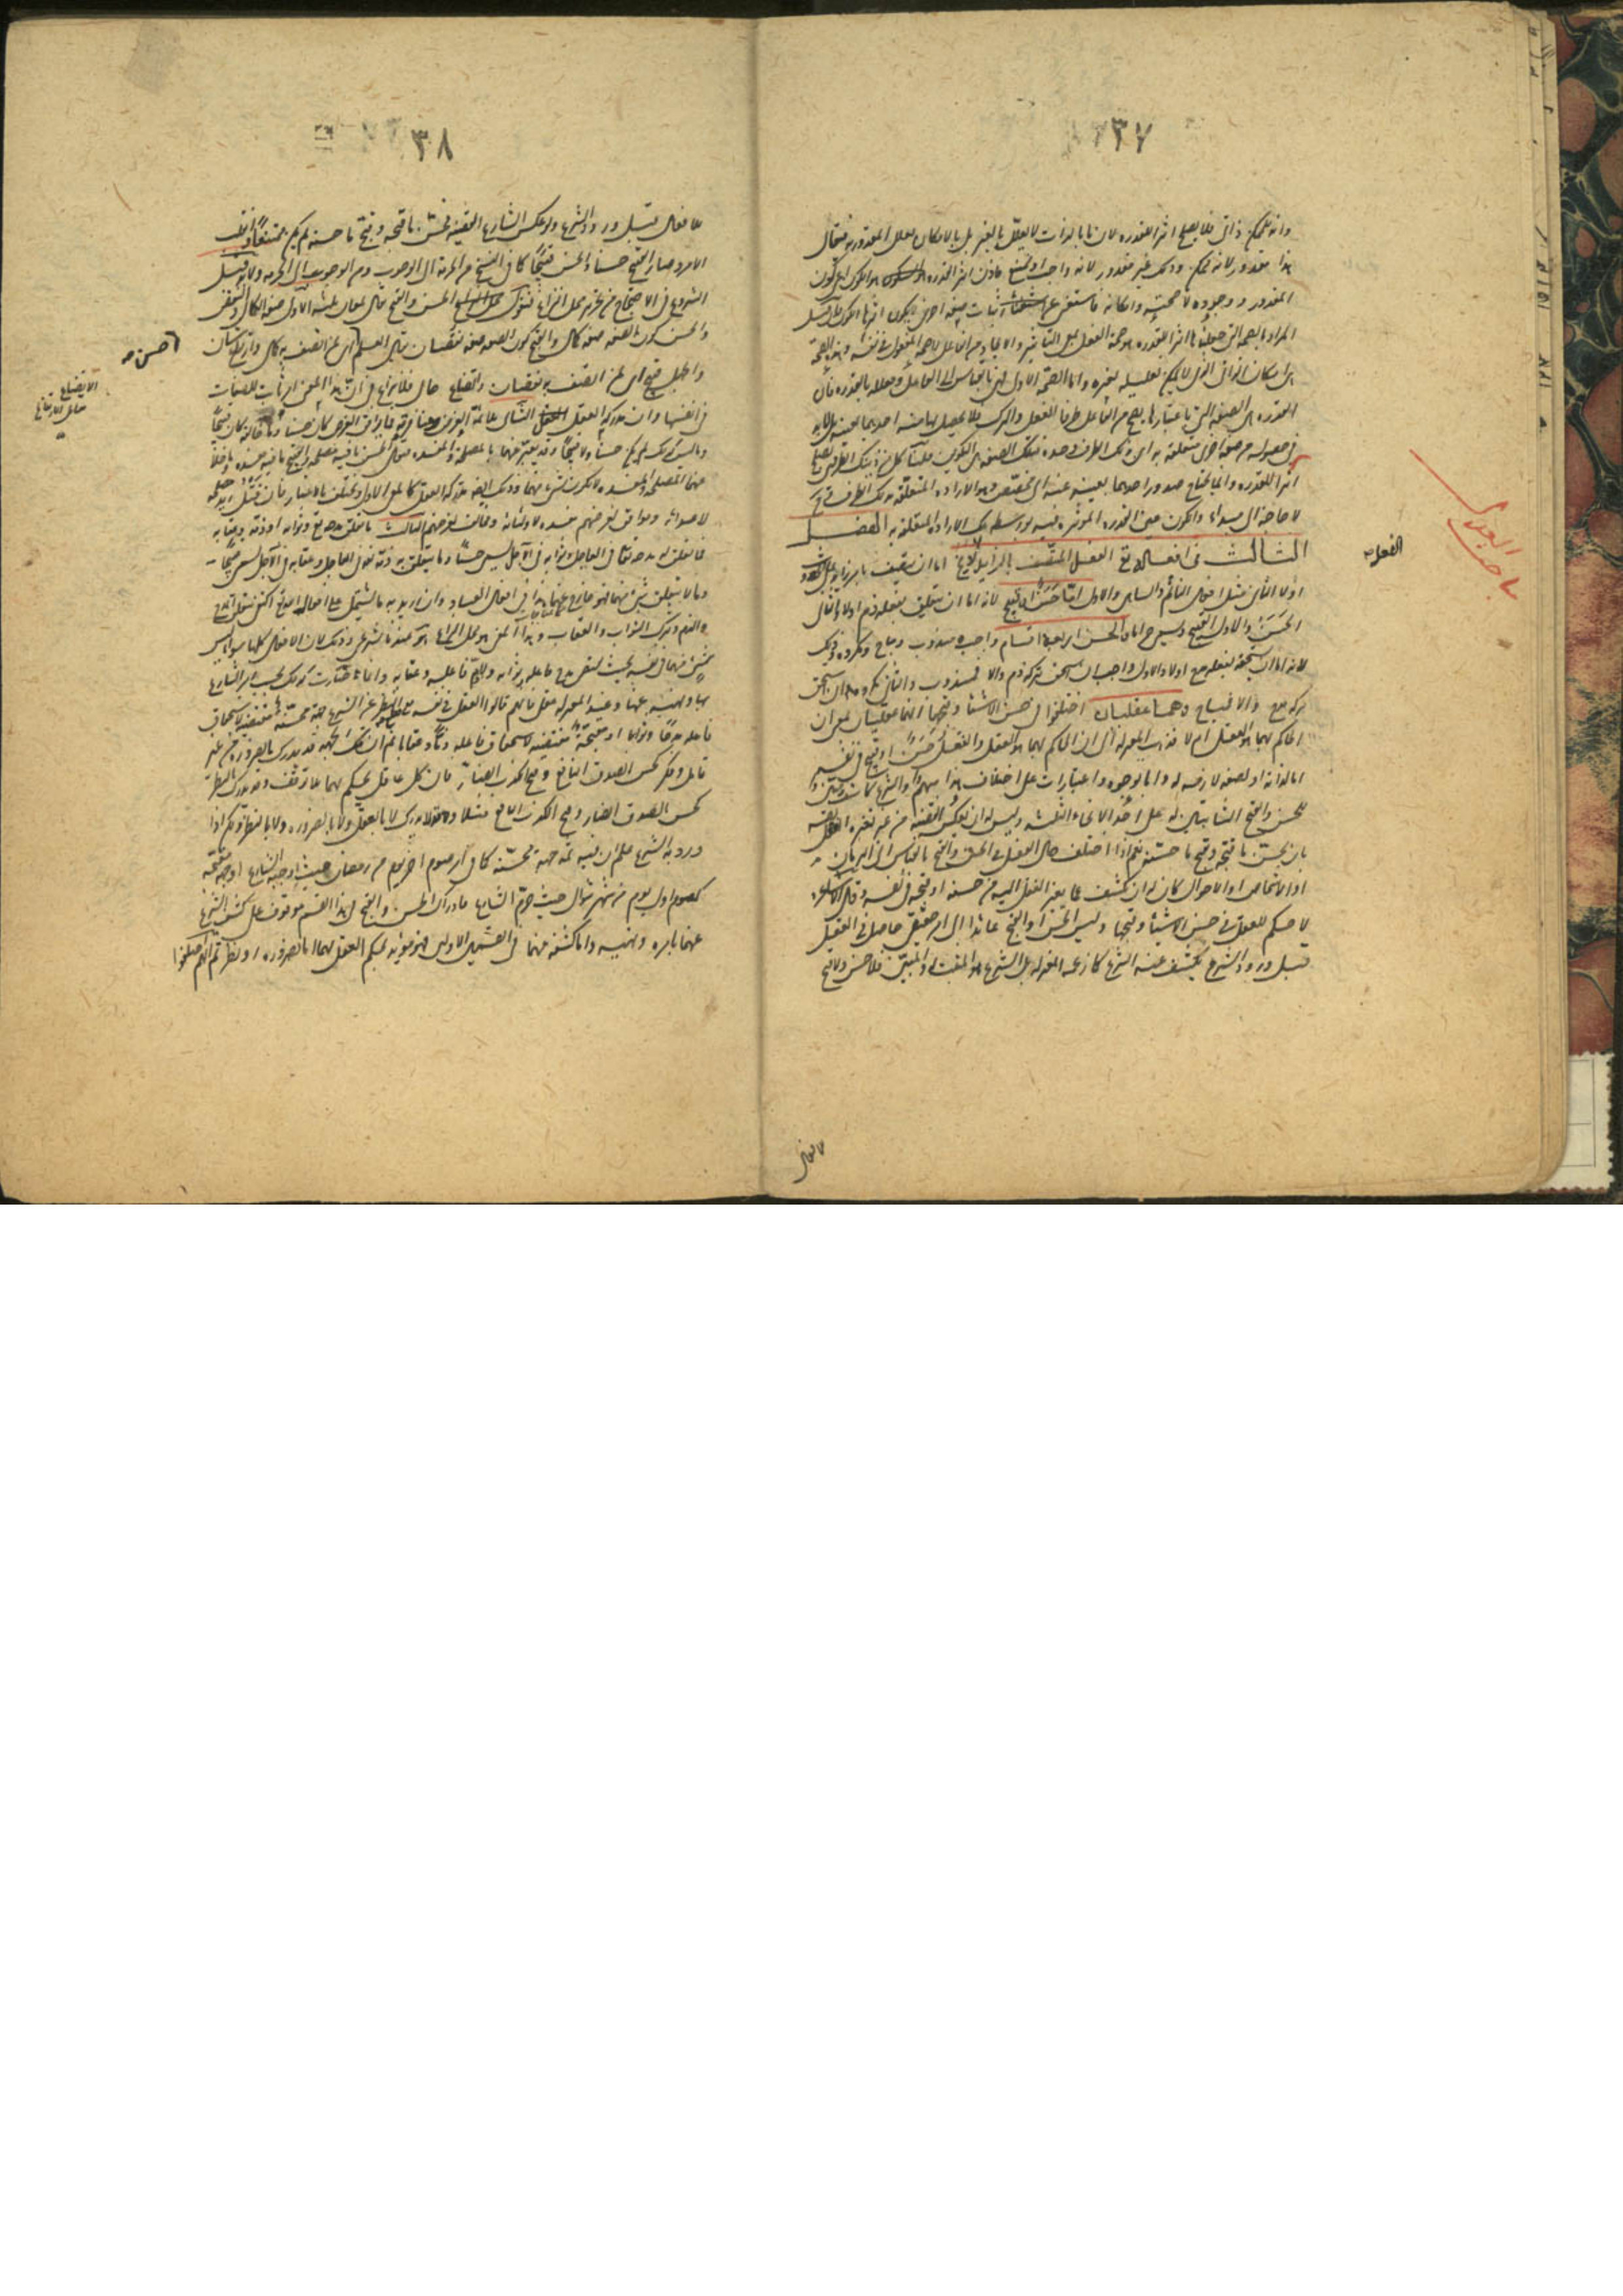 ٣٧
وانه ممكن ذاتى فلا يصلح اثرا للقدرة لان ما بالذات لا يعلل بالغير بل بالامكان تعلل المقدورية فيقال
هذا مقدور لانه ممكن وذلك غير مقدور لانه واجب او ممتنع فاذن اثر القدرة هو الكون اى كون
المقدور ووجوده لا صحته وامكانه فاستغنى عن اثبات صفة اخرى يكون اثرها الكون فان قيل
المراد بالصحة التى جعلناها اثرا للقدرة هو صحة الفعل بمعنى التأثير والايجاد من الفاعل لا صحة المفعول فى نفسه وهذه الصحة
هى امكان الذاتى الذى لا يمكن تعليله بغيره واما الصحة الاولى فهى بالقياس الى الفاعل ومعللة بالقدرة فان
القدرة هى الصفة التى باعتبارها يصح من الفاعل طرفا الفعل والترك فلا يحصل بها منه احدهما بعينه بل لا بد
فى حصوله من صفة اخرى متعلقة به اى بذلك الطرف وحده فتلك الصفة هى التكوين قلنا كل من ذينك الطرفين يصلح
اثرا للقدرة وانما يحتاج صدور احدهما بعينه عنه الى مخصص وهو الارادة المتعلقة بذلك الطرف فح
لا حاجة الى مبدأ والكون عن القدرة المؤثرة فيه بواسطة تلك الارادة المتعلقة به الفصل
الثالث فى افعاله تع الفعل المتصف بالزايد اما ان يتصف بامر زايد على
اولا الثانى مثل افعال النائم والساهى والاول اما حسن او قبيح لانه اما ان يتعلق بفعله ذم اولا والثانى
الحسن والاول القبيح والحسن اربعة اقسام واجب ومندوب ومباح ومكروه وذلك
لانه اما ان يستحق بفعله مدح اولا والاول واجب ان استحق بتركه ذم والا فمندوب والثانى مكروه ان استحق
بتركه مدح والا فمباح وهما عقليان اختلفوا فى حسن الاشياء وقبحها انهما عقليان بمعنى ان
الحاكم بهما هو العقل ام لا فذهب المعتزلة الى ان الحاكم بهما هو العقل والفعل حسن او قبيح فى نفسه
اما لذاته او لصفة لازمة له واما بوجوه واعتبارات على اختلاف مذاهبهم والشرع كاشف ومبين
للحسن والقبح الثابتين له على احد الانحاء الثلثة وليس له ان يعكس القضية من عند نفسه
بان يحسن ما قبحه ويقبح ما حسنه نعم اذا اختلف حال الفعل فى الحسن والقبح بالقياس الى الازمان
او الاشخاص او الاحوال كان له ان يكشف عما تغير الفعل اليه من حسنه او قبحه فى نفسه وقال الاشاعرة
لا حكم للعقل فى حسن الاشياء وقبحها وليس الحسن او القبح عائدا الى امر حقيقى حاصل فى الفعل
قبل ورود الشرع يكشف عنه الشرع كما زعمه المعتزلة بل الشرع هو المثبت له والمبين فلا حسن ولا قبح
للافعال
الفعل
٣٨
للافعال قبل ورود الشرع ولو عكس الشارع القضية فحسن ما قبحه وقبح ما حسنه لم يكن ممتنعا وانقلب
الامر وصار القبيح حسنا والحسن قبيحا كما فى النسخ من الحرمة الى الوجوب ومن الوجوب الى الحرمة ولا بد قبل
الشروع فى الاحتجاج من تحرير محل النزاع فنقول الحسن والقبح يقال لمعان ثلثة الاول صفة الكمال والنقص
والحسن كون الصفة صفة كمال والقبح كون الصفة صفة نقصان يقال العلم اى لمن اتصف به كمال وارتفاع شان
والجهل قبيح اى لمن اتصف به نقصان واتضاع حال فلا نزاع فى ان هذا المعنى امر ثابت للصفات
فى انفسها وان مدركه العقل الثانى ملائمة الغرض ومنافرته فما وافق الغرض كان حسنا وما خالفه كان قبيحا
وما ليس كذلك لم يكن حسنا ولا قبيحا وقد يعبر عنهما بالمصلحة والمفسدة فيقال الحسن ما فيه مصلحة والقبيح ما فيه مفسدة وما خلا
عنهما لا يكون شئ منهما وذلك ايضا مدركه العقل كالمعنى الاول ويختلف بالاعتبار فان قتل زيد مصلحة
لاعدائه وموافق لغرضهم مفسدة لاوليائه ومخالف لغرضهم الثالث ما تعلق به مدحه تع وثوابه او ذمه وعقابه
فما تعلق به مدحه تعالى فى العاجل وثوابه فى الآجل يسمى حسنا وما يتعلق به ذمه تعالى فى العاجل وعقابه فى الآجل يسمى قبيحا
وما لا يتعلق بشئ منهما فهو خارج عنهما هذا فى افعال العباد وان اريد به ما يشتمل على افعال الله تع اكتفى بتعلق المدح
والذم وترك الثواب والعقاب وهذا المعنى هو محل النزاع فهو عندنا شرعى وذلك لان الافعال كلها سواسية ليس
شئ منها فى نفسه بحيث يقتضى مدح فاعله وثوابه ولا ذم فاعله وعقابه وانما صارت كذلك بحسب امر الشارع
بها ونهيه عنها وعند المعتزلة عقلى فانهم قالوا للفعل فى نفسه مع قطع النظر عن الشرع جهة محسنة مقتضية لاستحقاق
فاعله مدحا وثوابا او مقبحة مقتضية لاستحقاق فاعله ذما وعقابا ثم ان تلك الجهة قد تدرك بالضرورة من غير
تأمل وفكر كحسن الصدق النافع وقبح الكذب الضار فان كل عاقل يحكم بهما بلا توقف وقد تدرك بالنظر
كحسن الصدق الضار وقبح الكذب النافع مثلا وقد لا يدرك لا بالضرورة ولا بالنظر ولكن اذا
ورد به الشرع علم ان فيه ثمة جهة محسنة كما فى صوم اخر يوم من رمضان حيث اوجبه الشارع او جهة مقبحة
كصوم اول يوم من شهر شوال حيث حرمه الشارع فادراك الحسن والقبح فى هذا القسم موقوف على كشف الشرع
عنهما بامره ونهيه واما كشفه عنهما فى القسمين الاولين فهو مؤيد لحكم العقل بهما اما بالضرورة او بنظر ثم انهم اختلفوا
حسن